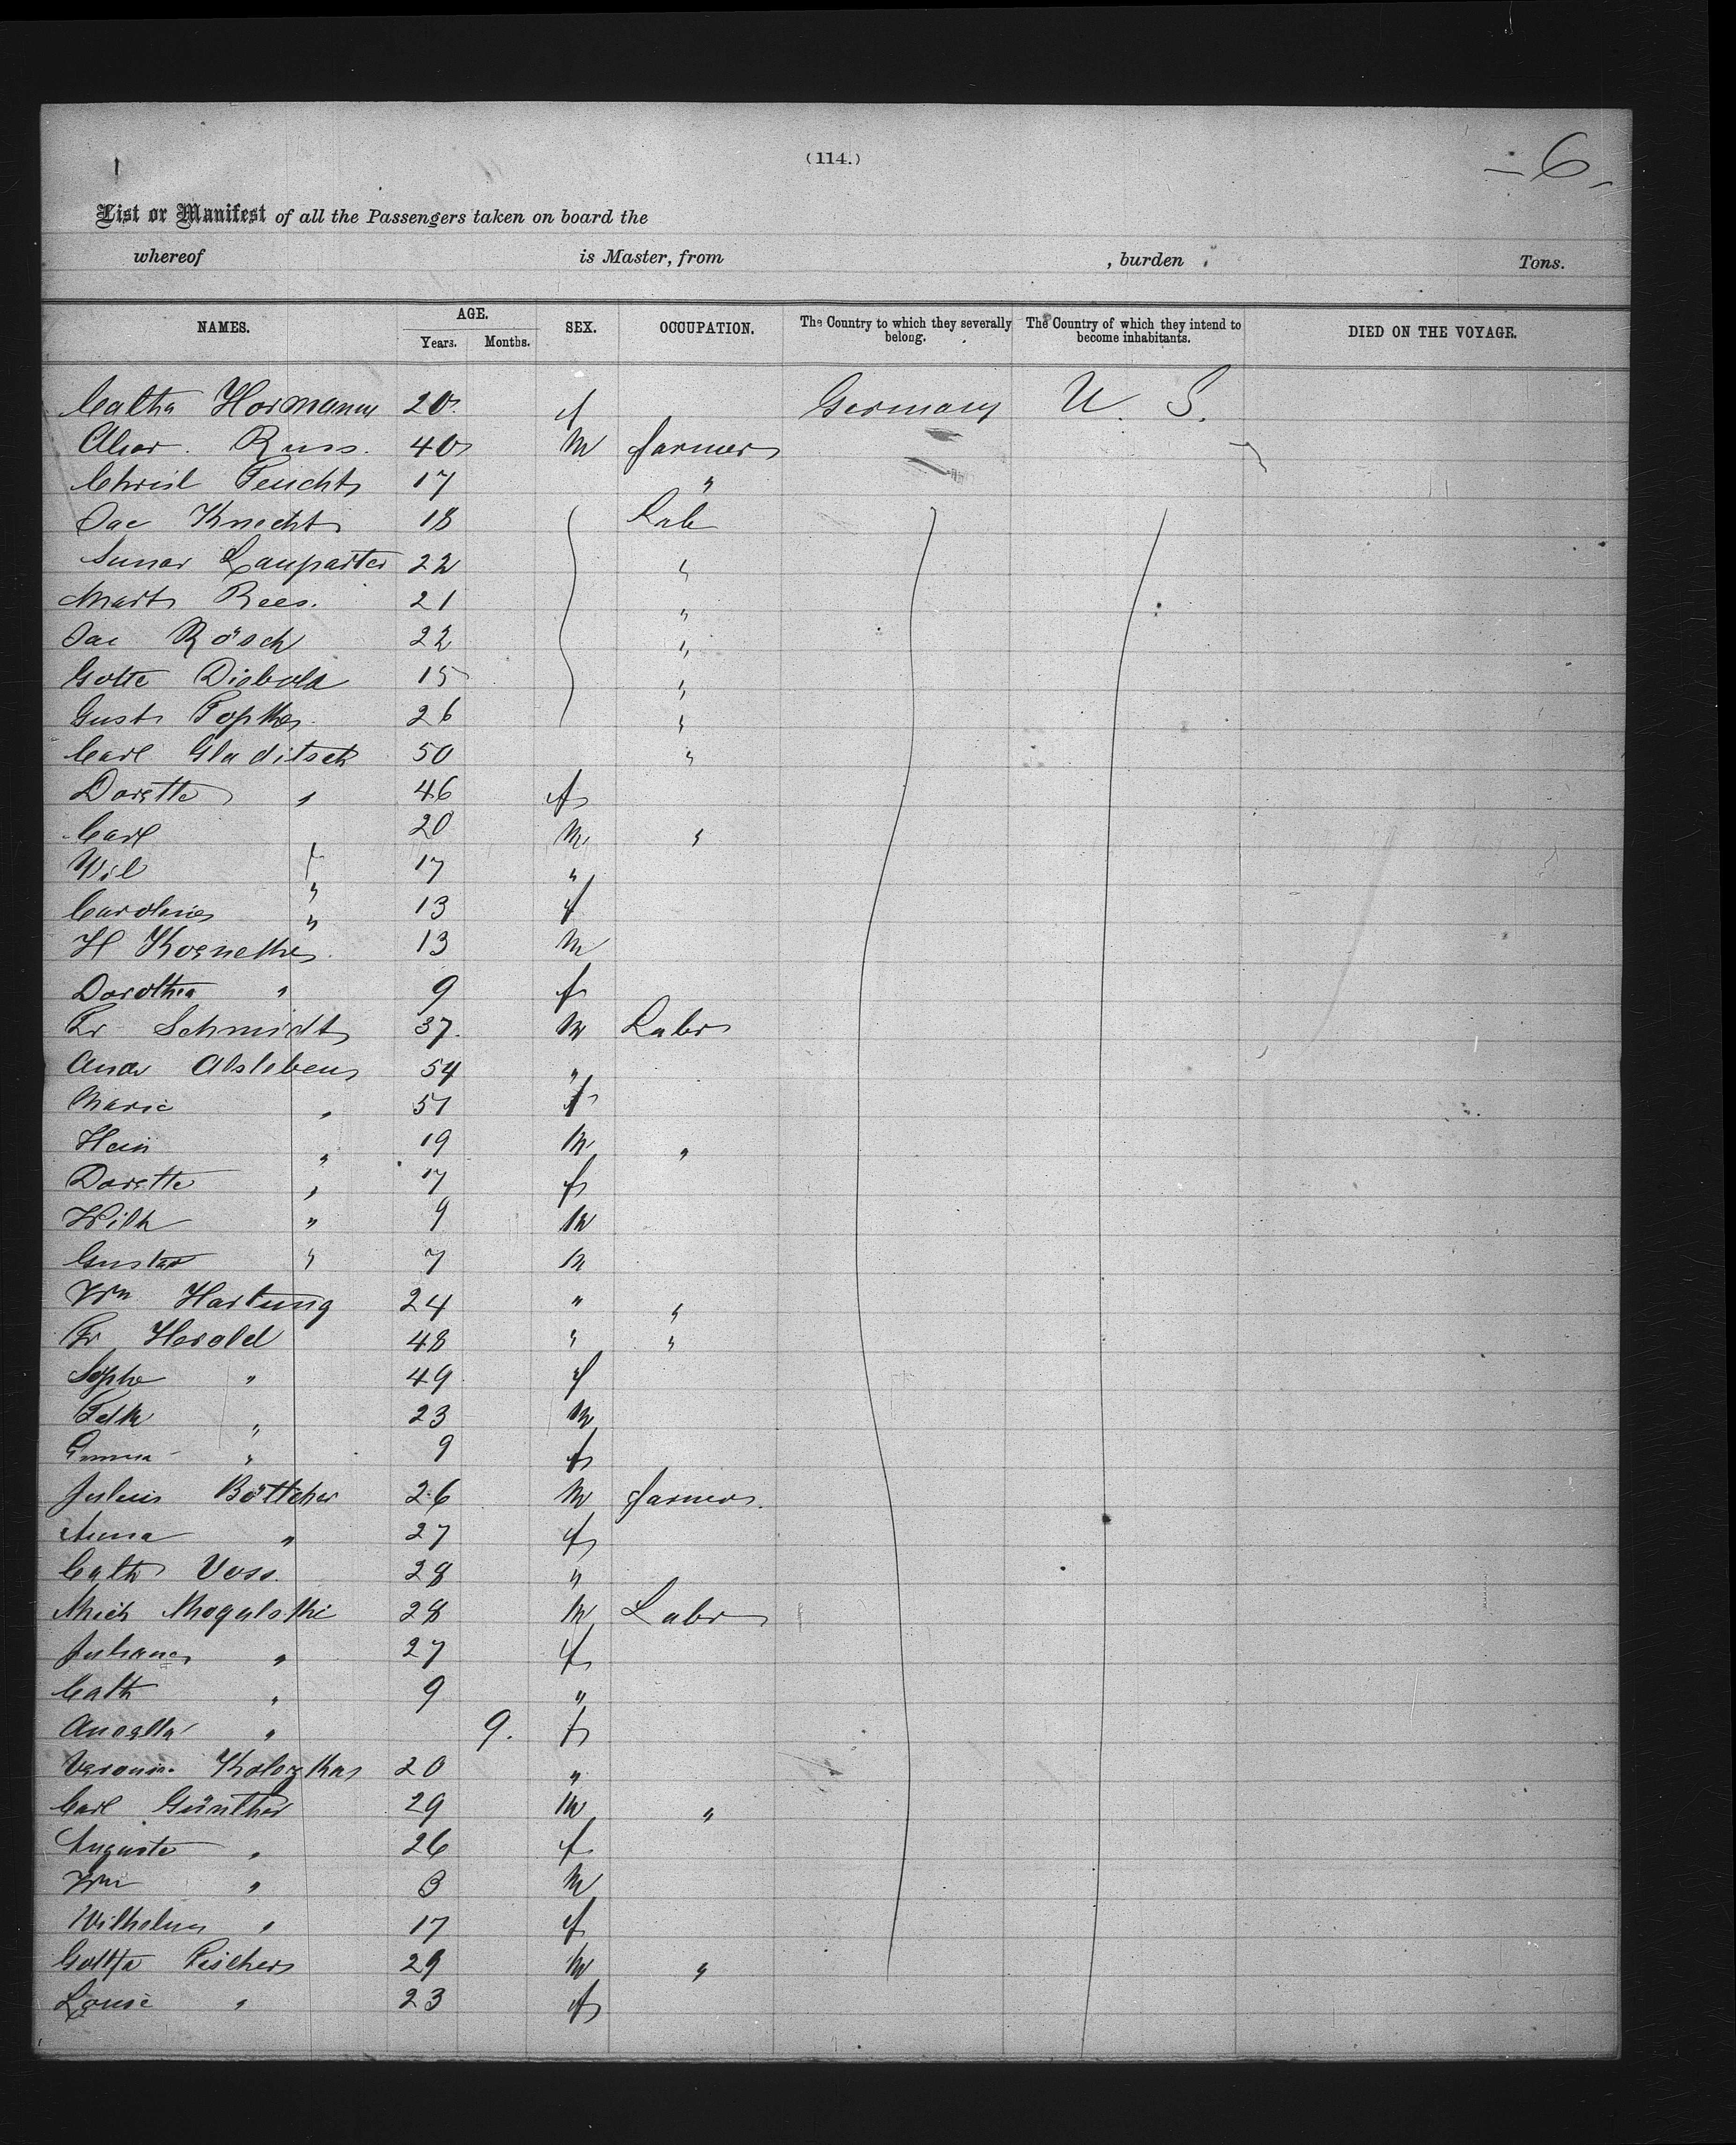 (114.)
- 6 -
List or Manifest of all the Passengers taken on board the
whereof is Master, from , burden Tons.
NAMES. AGE. Years. Months. SEX. OCCUPATION. The Country to which they severally belong. The Country of which they intend to become inhabitants. DIED ON THE VOYAGE.
Catha Hormann 20 f Germany U. S.
Russ. 40 M farmer
Christ Feucht 17 "
Jac Knecht 18 Lab
Lauparter 22 "
Mart Rees. 21 "
Jac Rösch 22 "
Gotte Diebold 15 "
Gust 26 "
Carl Gladitsch 50 "
Dorette " 46 f
Carl 20 M "
Wil " 17 "
Caroline " 13 f
H 13 M
Dorothea " 9 f
Fr Schmidt 37. M Labr
Andr Alsleben 54 "
Marie " 51 f
Hein " 19 M "
Dorette " 17 f
Wilh " 9 M
Gustav " 7 M
Wm Hartung 24 " "
Fr Herold 48 " "
Sophe " 49 f
" 23 M
Emma " 9 f
Julius Böttcher 26 M farmer.
Anna " 27 f
Cath Voss. 28 "
Mich Mogalski 28 M Labr
Juliana " 27 f
Cath " 9 "
" 9. f
Veroni. 20 "
Carl Günther 29 M "
Auguste " 26 f
Wm " 3 M
Wilhelm " 17 f
Fischer 29 M "
Louise " 23 f